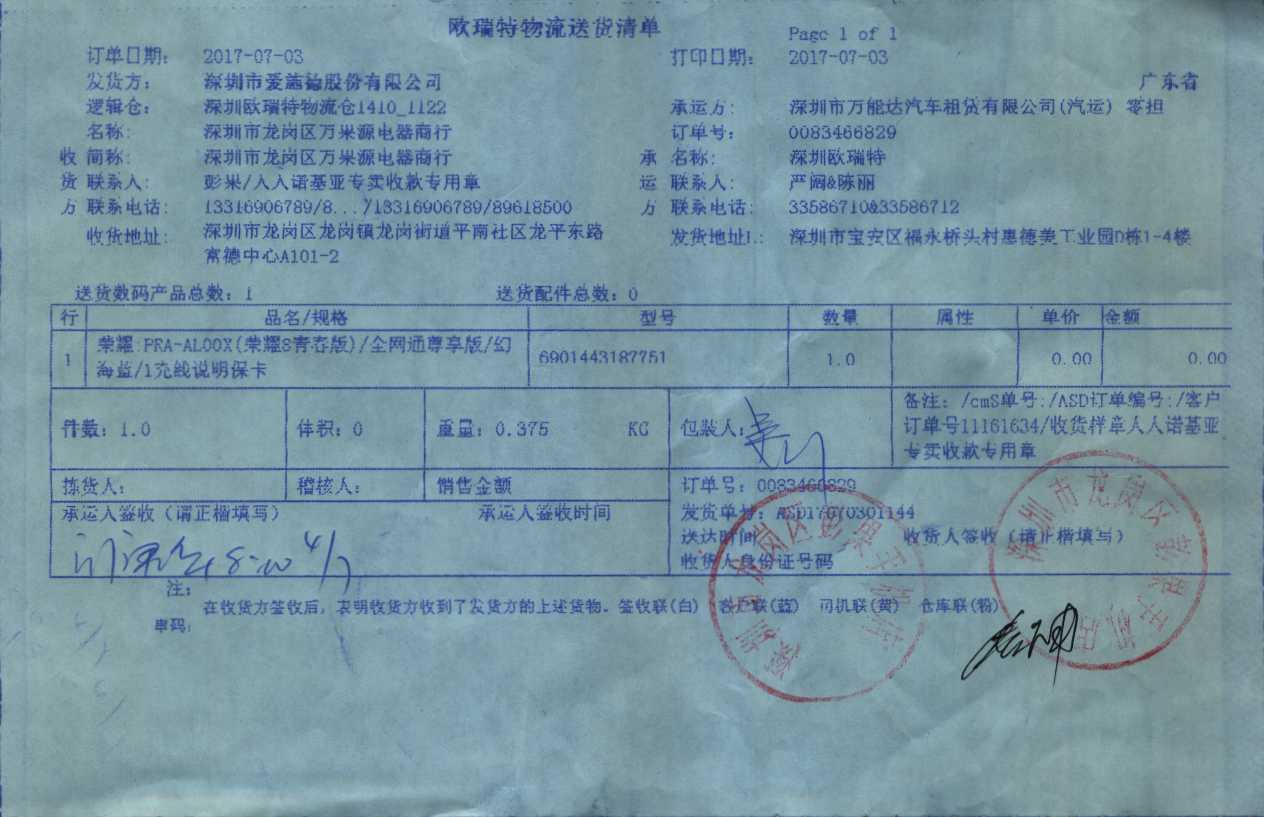 欧瑞特物流送货清单
Page 1 of 1
订单日期: 2017-07-03 打印日期: 2017-07-03
发货方: 深圳市爱施德股份有限公司 广东省
逻辑仓: 深圳欧瑞特物流仓1410_1122 承运方: 深圳市万能达汽车租赁有限公司(汽运) 零担
名称: 深圳市龙岗区万果源电器商行 订单号: 0083466829
收 简称: 深圳市龙岗区万果源电器商行 承 名称: 深圳欧瑞特
货 联系人: 彭果/人人诺基亚专卖收款专用章 运 联系人: 严阔&陈丽
方 联系电话: 13316906789/8...7/13316906789/89618500 方 联系电话: 33586710&33586712
收货地址: 深圳市龙岗区龙岗镇龙岗街道平南社区龙平东路 发货地址1.: 深圳市宝安区福永桥头村惠德美工业园D栋1-4楼
富德中心A101-2
送货数码产品总数: 1 送货配件总数: 0
行 品名/规格 型号 数量 属性 单价 金额
1 荣耀 PRA-AL00X(荣耀8青春版)/全网通尊享版/幻 6901443187751 1.0 0.00 0.00
海蓝/1充线说明保卡
件数: 1.0 体积: 0 重量: 0.375 KG 包装人: 备注: /cmS单号:/ASD订单编号:/客户
订单号11161634/收货样章人人诺基亚
专卖收款专用章
拣货人: 稽核人: 销售金额 订单号: 0083466829
承运人签收（请正楷填写） 承运人签收时间 发货单号: ASD17070301144
送达时间 收货人签收（请正楷填写）
8:20 4/7 收货人身份证号码
注:
在收货方签收后, 表明收货方收到了发货方的上述货物。签收联(白) 客户联(蓝) 司机联(黄) 仓库联(粉)
串码:
深圳市龙岗区彭果手机店
深圳市龙岗区彭果手机店